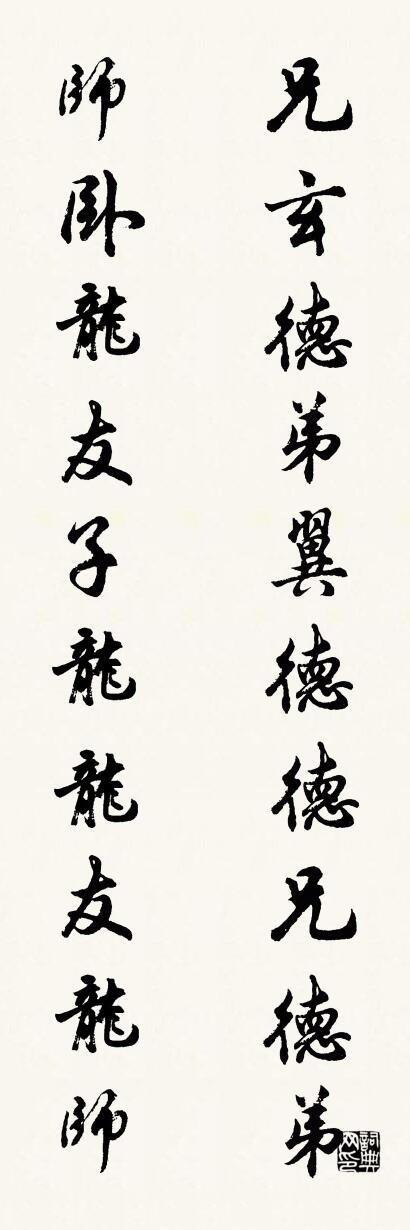 兄玄德弟翼德德兄德弟
師卧龍友子龍龍友龍師